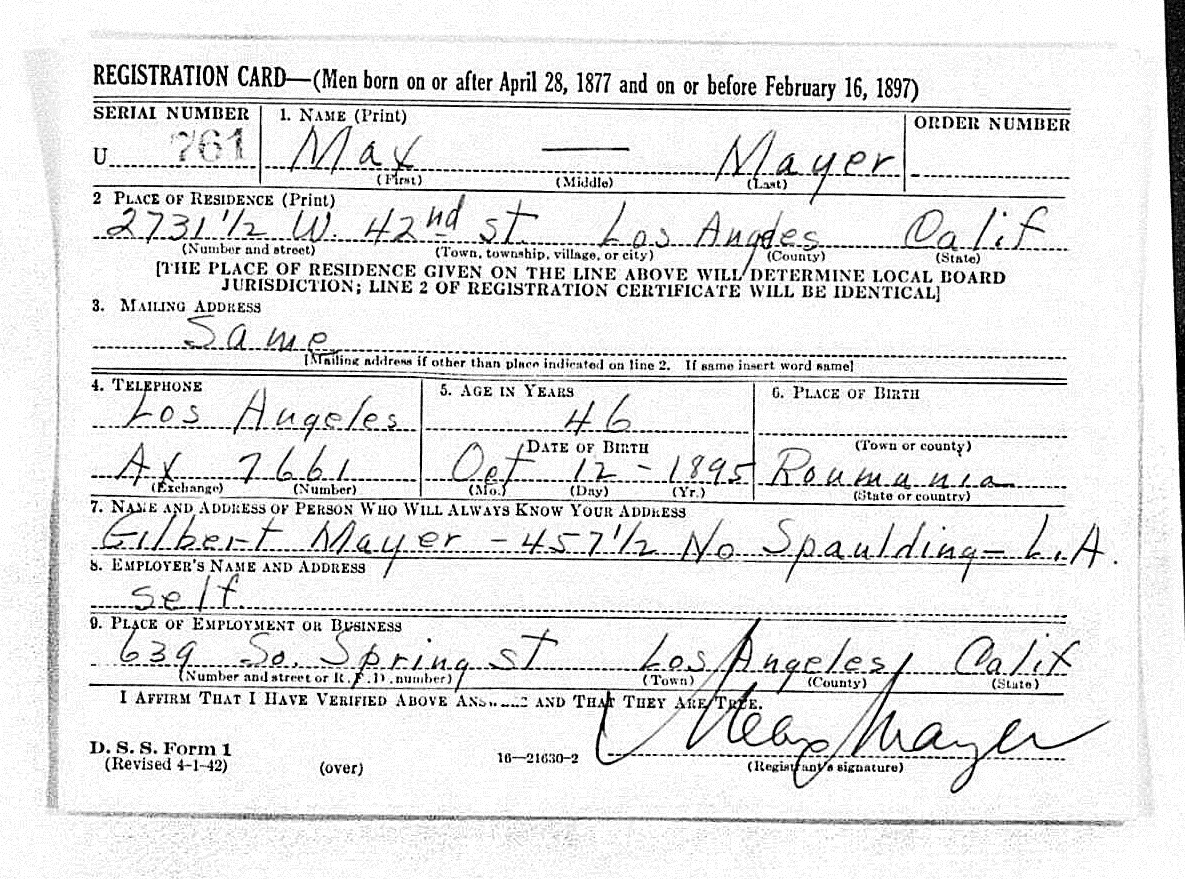 REGISTRATION CARD—(Men born on or after April 28, 1877 and on or before February 16, 1897)
SERIAL NUMBER
1. NAME (Print)
ORDER NUMBER
U 761
Max — Mayer
(First) (Middle) (Last)
2 PLACE OF RESIDENCE (Print)
2731 1/2 W. 42nd st. Los Angeles Calif
(Number and street) (Town, township, village, or city) (County) (State)
[THE PLACE OF RESIDENCE GIVEN ON THE LINE ABOVE WILL DETERMINE LOCAL BOARD
JURISDICTION; LINE 2 OF REGISTRATION CERTIFICATE WILL BE IDENTICAL]
3. MAILING ADDRESS
Same
[Mailing address if other than place indicated on line 2. If same insert word same]
4. TELEPHONE
5. AGE IN YEARS
6. PLACE OF BIRTH
Los Angeles
46
DATE OF BIRTH
(Town or county)
Ax 7661
Oct 12 - 1895
Roumania
(Exchange) (Number)
(Mo.) (Day) (Yr.)
(State or country)
7. NAME AND ADDRESS OF PERSON WHO WILL ALWAYS KNOW YOUR ADDRESS
Gilbert Mayer - 457 1/2 No Spaulding - L.A.
8. EMPLOYER'S NAME AND ADDRESS
self
9. PLACE OF EMPLOYMENT OR BUSINESS
639 So. Spring st Los Angeles, Calif
(Number and street or R. F. D. number) (Town) (County) (State)
I AFFIRM THAT I HAVE VERIFIED ABOVE AND THAT THEY ARE TRUE.
Max Mayer
D. S. S. Form 1
(Revised 4-1-42) (over) 16—21630-2 (Registrant's signature)